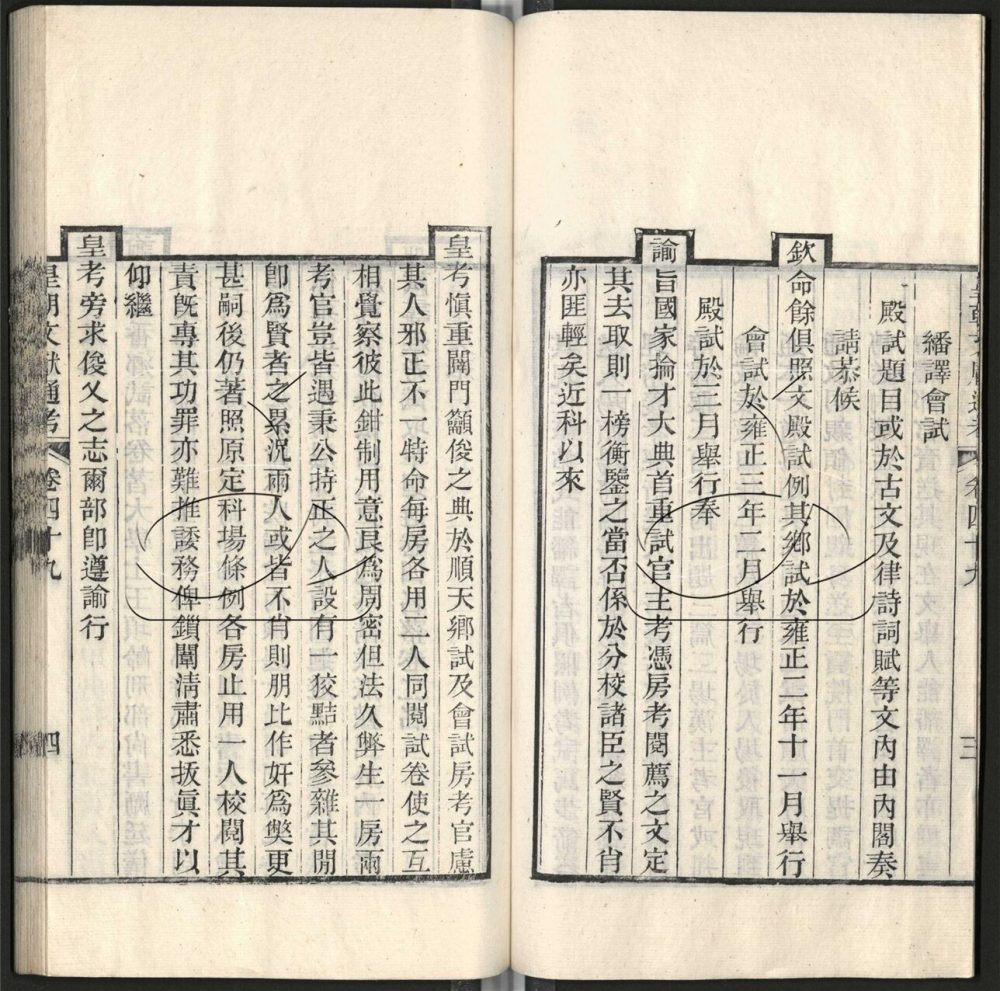 繙譯會試
殿試題目或於古文及律詩詞賦等文內由內閣奏
請恭候
欽命餘俱照文殿試例其鄉試於雍正二年十一月舉行
會試於雍正三年二月舉行
殿試於三月舉行奉
諭旨國家掄才大典首重試官主考憑房考閱薦之文定
其去取則一榜衡鑒之當否係於分校諸臣之賢不肖
亦匪輕矣近科以來
三
皇考慎重闢門籲俊之典於順天鄉試及會試房考官慮
其人邪正不一特命每房各用二人同閱試卷使之互
相覺察彼此鉗制用意良為周密但法久弊生一房兩
考官豈皆遇秉公持正之人設有一狡黠者參雜其閒
卽為賢者之累況兩人或皆不肖則朋比作奸為獘更
甚嗣後仍著照原定科場條例各房止用一人校閱其
責旣專其功罪亦難推諉務俾鎖闈清肅悉拔眞才以
仰繼
皇考旁求俊乂之志爾部卽遵諭行
皇朝文獻通考 卷四十九 四